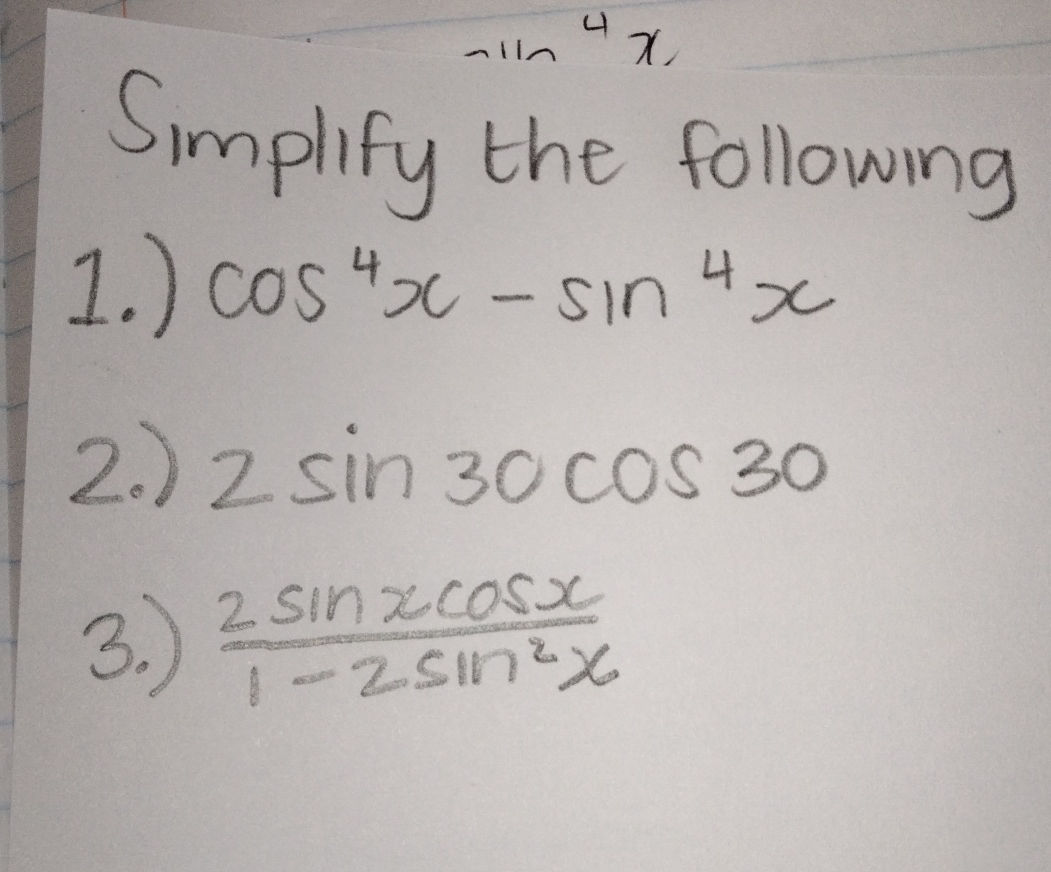 4 x
Simplify the following
1.) cos⁴x - sin⁴x
2.) 2 sin 30 cos 30
3.) 2 sin x cos x
1 - 2 sin²x